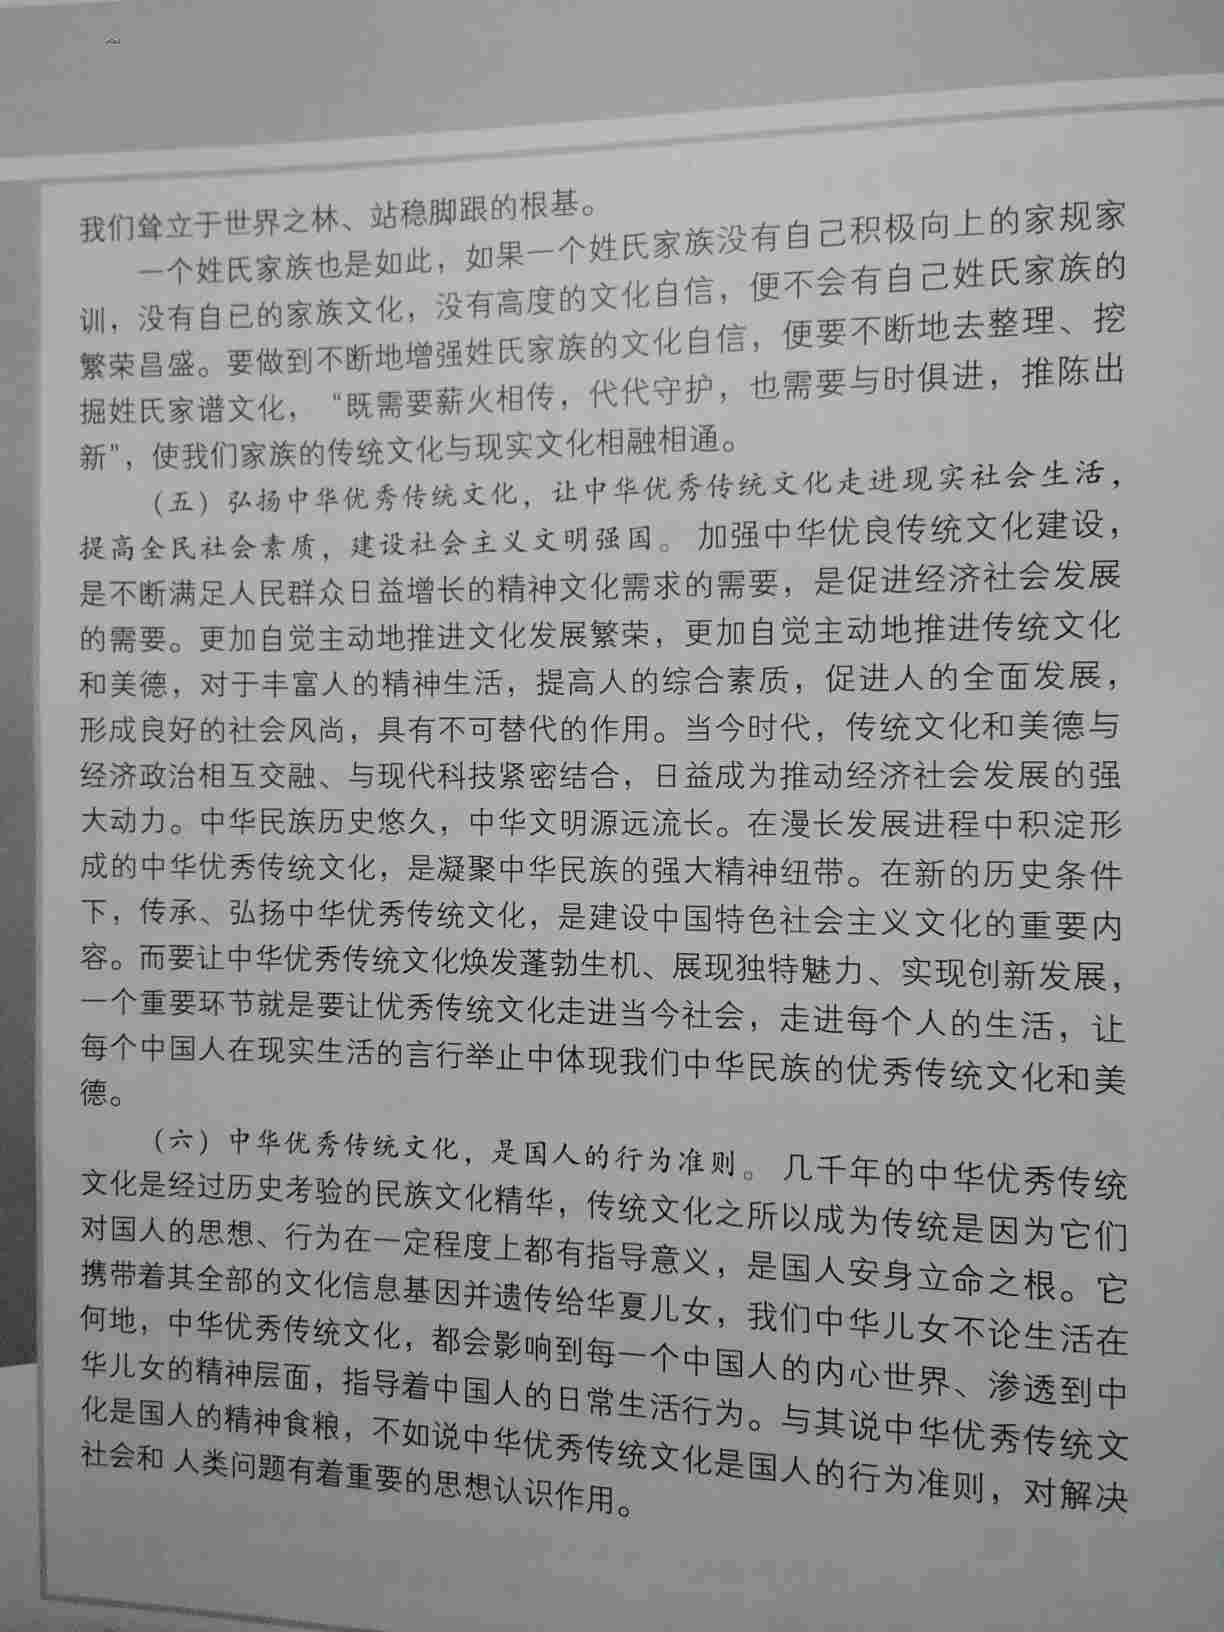 我们耸立于世界之林、站稳脚跟的根基。
一个姓氏家族也是如此，如果一个姓氏家族没有自己积极向上的家规家
训，没有自已的家族文化，没有高度的文化自信，便不会有自己姓氏家族的
繁荣昌盛。要做到不断地增强姓氏家族的文化自信，便要不断地去整理、挖
掘姓氏家谱文化，“既需要薪火相传，代代守护，也需要与时俱进，推陈出
新”，使我们家族的传统文化与现实文化相融相通。
（五）弘扬中华优秀传统文化，让中华优秀传统文化走进现实社会生活，
提高全民社会素质，建设社会主义文明强国。加强中华优良传统文化建设，
是不断满足人民群众日益增长的精神文化需求的需要，是促进经济社会发展
的需要。更加自觉主动地推进文化发展繁荣，更加自觉主动地推进传统文化
和美德，对于丰富人的精神生活，提高人的综合素质，促进人的全面发展，
形成良好的社会风尚，具有不可替代的作用。当今时代，传统文化和美德与
经济政治相互交融、与现代科技紧密结合，日益成为推动经济社会发展的强
大动力。中华民族历史悠久，中华文明源远流长。在漫长发展进程中积淀形
成的中华优秀传统文化，是凝聚中华民族的强大精神纽带。在新的历史条件
下，传承、弘扬中华优秀传统文化，是建设中国特色社会主义文化的重要内
容。而要让中华优秀传统文化焕发蓬勃生机、展现独特魅力、实现创新发展，
一个重要环节就是要让优秀传统文化走进当今社会，走进每个人的生活，让
每个中国人在现实生活的言行举止中体现我们中华民族的优秀传统文化和美
德。
（六）中华优秀传统文化，是国人的行为准则。几千年的中华优秀传统
文化是经过历史考验的民族文化精华，传统文化之所以成为传统是因为它们
对国人的思想、行为在一定程度上都有指导意义，是国人安身立命之根。它
携带着其全部的文化信息基因并遗传给华夏儿女，我们中华儿女不论生活在
何地，中华优秀传统文化，都会影响到每一个中国人的内心世界、渗透到中
华儿女的精神层面，指导着中国人的日常生活行为。与其说中华优秀传统文
化是国人的精神食粮，不如说中华优秀传统文化是国人的行为准则，对解决
社会和 人类问题有着重要的思想认识作用。